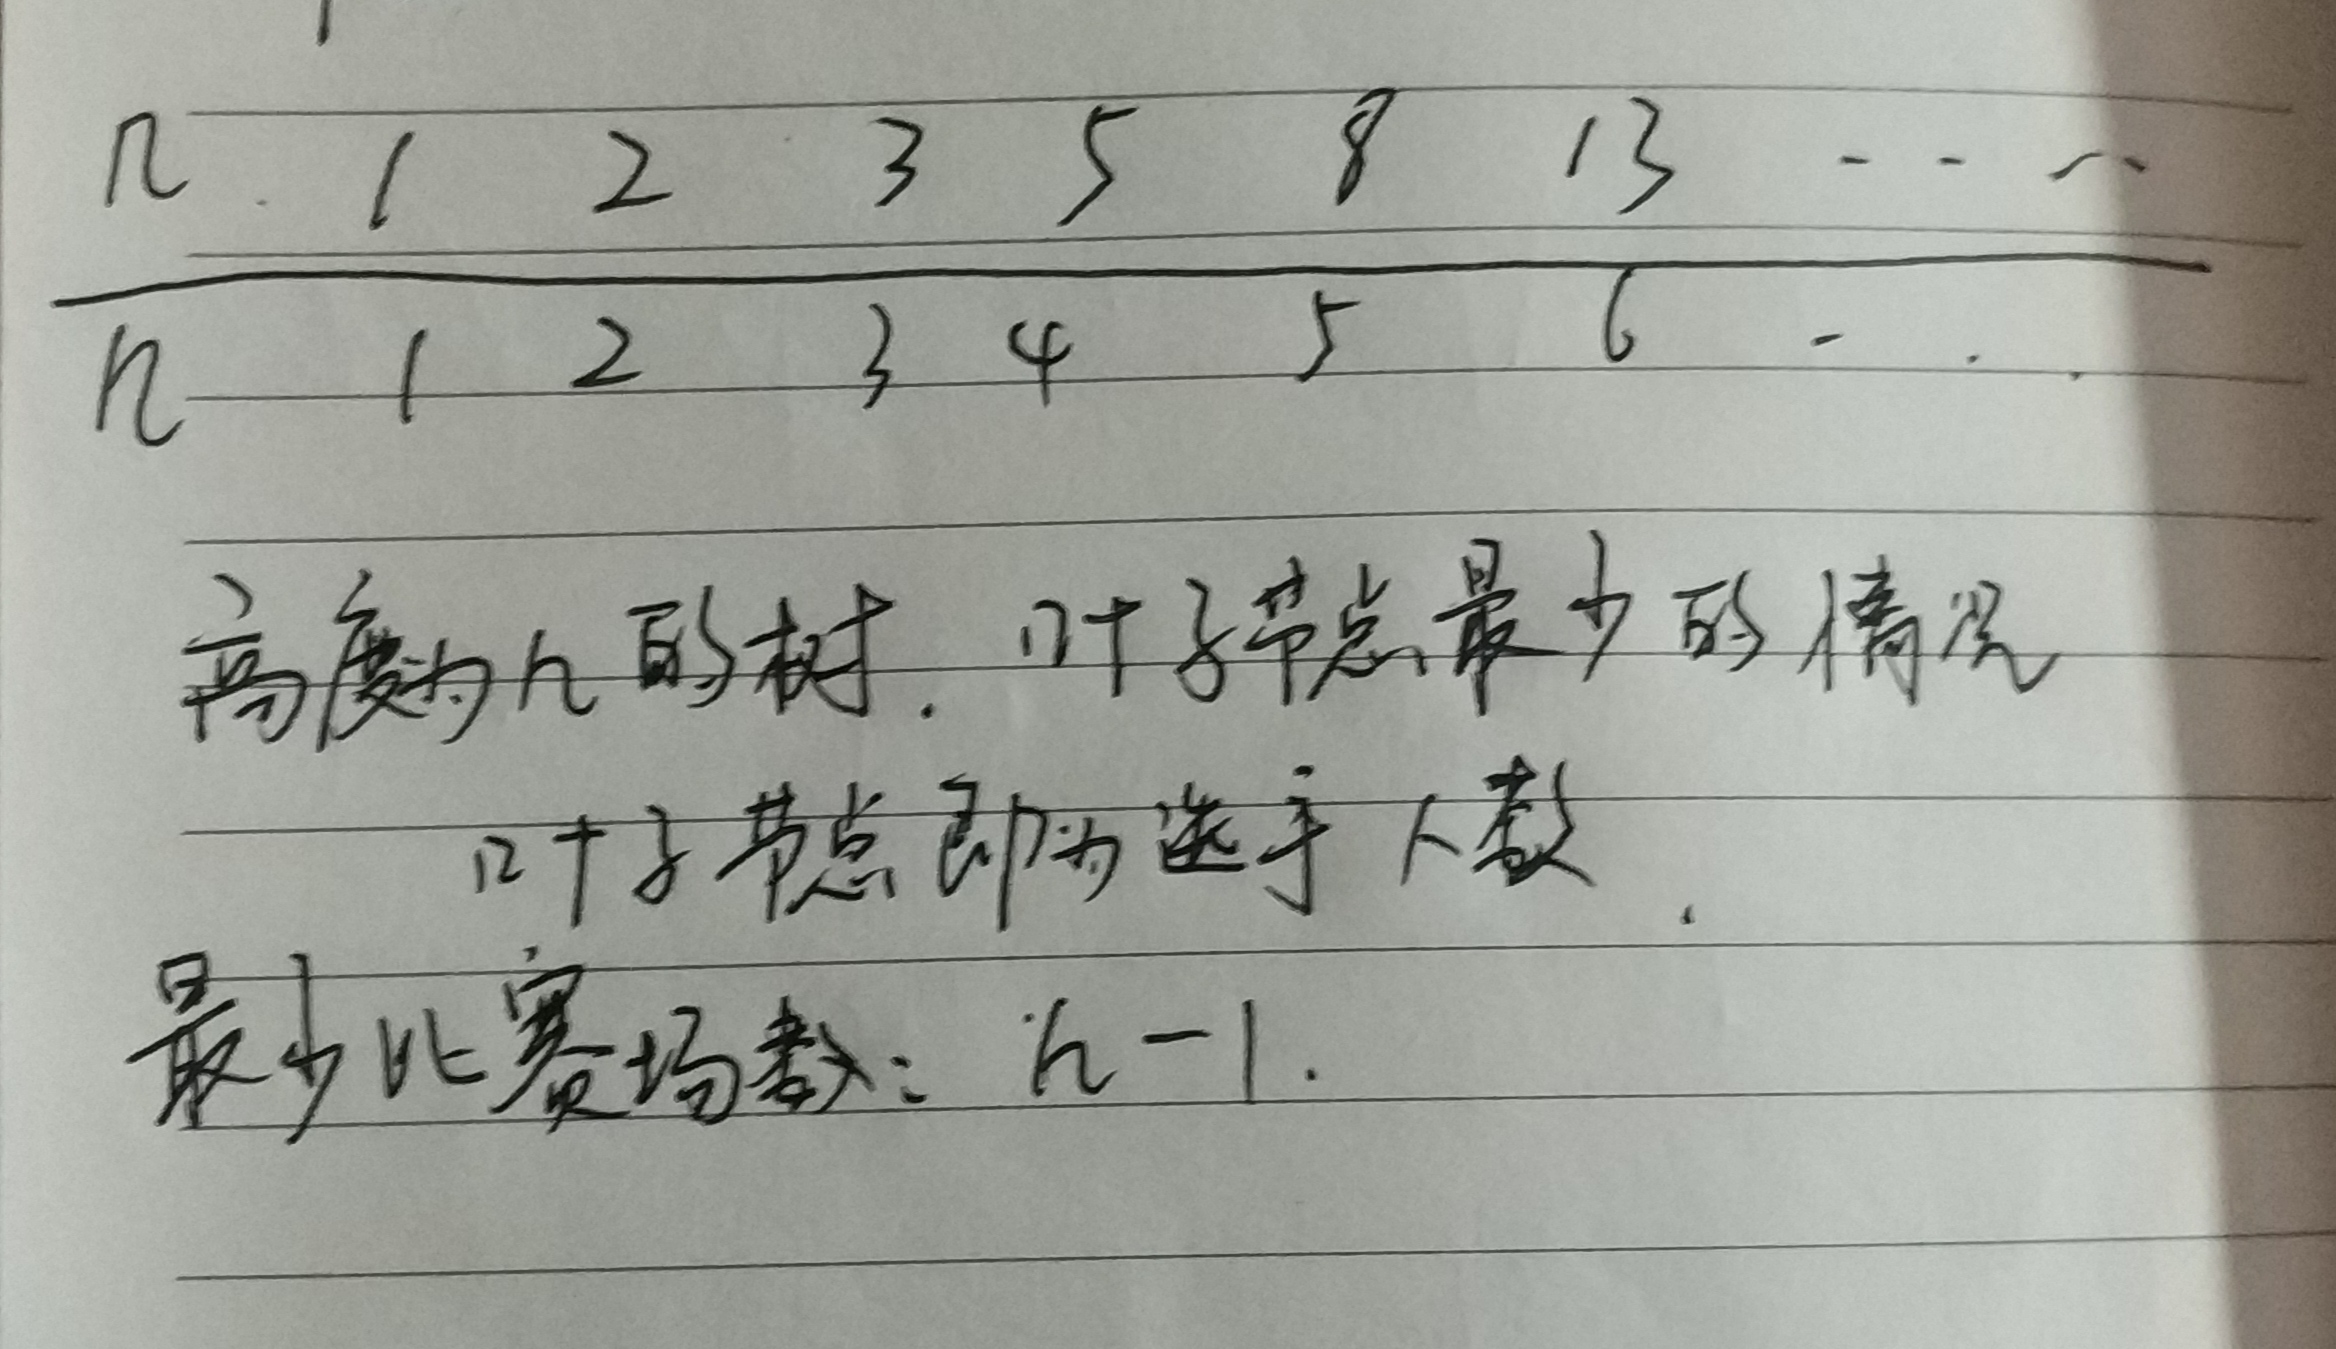 n 1 2 3 5 8 13 ----
h 1 2 3 4 5 6 - . .
高度为h的树. 叶子节点最少的情况
叶子节点即为选手人数.
最少比赛场数: h-1.